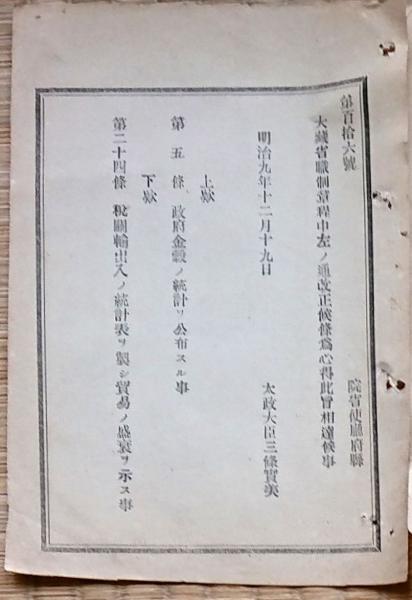 第百拾六號
院省使廳府縣
大藏省職制章程中左ノ通改正候條爲心得此旨相達候事
明治九年十二月十九日
太政大臣三條實美
上欵
第五條 政府金穀ノ統計ヲ公布スル事
下欵
第二十四條 稅關輸出入ノ統計表ヲ製シ貿易ノ盛衰ヲ示ス事